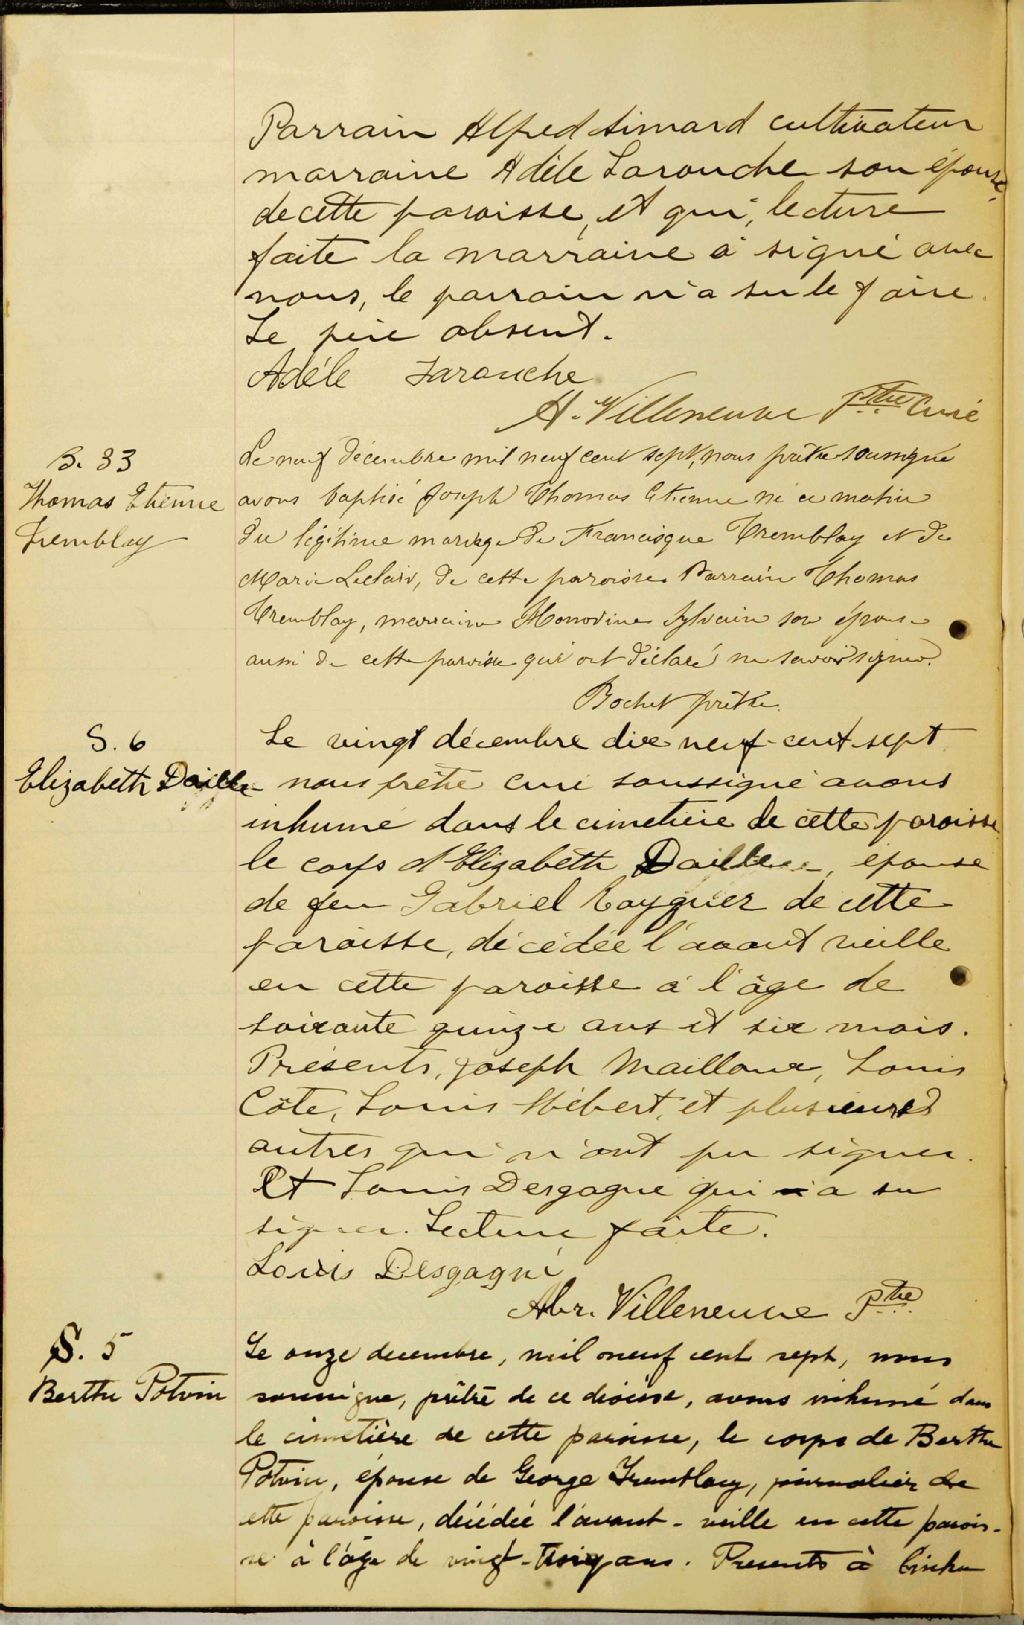 Parrain Alfred Simard cultivateur
marraine Adèle Larouche son épouse
de cette paroisse, et qui, lecture
faite la marraine a signé avec
nous, le parrain n'a su le faire.
Le père absent.
Adèle Larouche
A. Villeneuve Ptre Curé
B. 33
Thomas Etienne
Tremblay
Le neuf décembre mil neuf cent sept, nous prêtre soussigné
avons baptisé Joseph Thomas Etienne né ce matin
du légitime mariage de Francisque Tremblay et de
Marie Leclair, de cette paroisse Parrain Thomas
Tremblay, marraine Honorine Sylvain son épouse
aussi de cette paroisse qui ont déclaré ne savoir signer.
Bochet prêtre.
S. 6
Elizabeth
Le vingt décembre dix neuf-cent-sept
nous prêtre curé soussigné avons
inhumé dans le cimetière de cette paroisse
le corps d'Elizabeth épouse
de feu Gabriel de cette
paroisse, décédée l'avant veille
en cette paroisse à l'âge de
soixante quinze ans et six mois.
Présents, Joseph Mailloux, Louis
Côté, Louis Hébert, et plusieurs
autres qui n'ont pu signer.
Et Louis Desgagné qui a su
signer. Lecture faite.
Louis Desgagné
Abr. Villeneuve Ptre
S. 5
Berthe Potvin
Le onze decembre, mil neuf cent sept, nous
soussigné, prêtre de ce diocèse, avons inhumé dans
le cimetière de cette paroisse, le corps de Berthe
Potvin, épouse de George Tremblay, journalier de
cette paroisse, décédée l'avant-veille en cette parois-
se à l'âge de vingt-trois ans. Presents à l'inhu